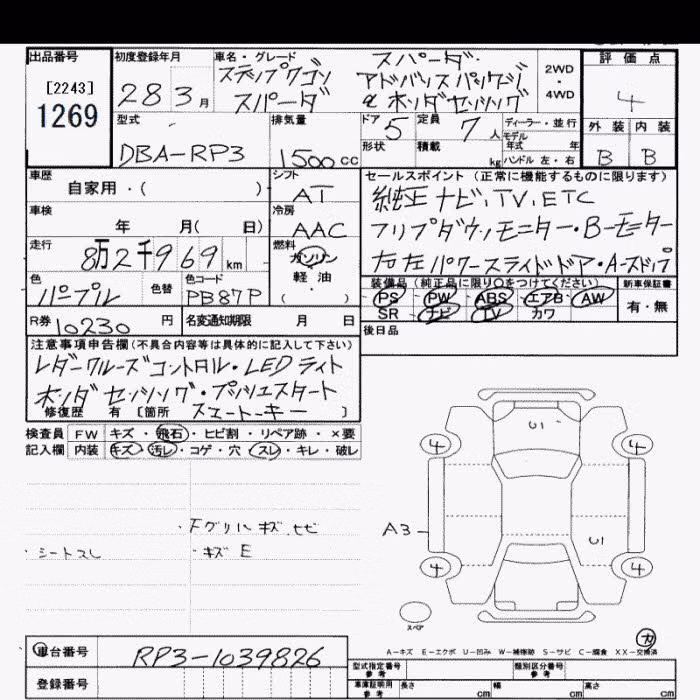 出品番号
[2243]
1269
初度登録年月
28 3月
車名・グレード
ステップワゴン
スパーダ
スパーダ・
アドバンスパッケージ
α ホンダセンシング
2WD
・
4WD
評価点
4
外装 内装
B B
型式
DBA-RP3
排気量
1500cc
ドア 5
形状
定員 7人
積載 kg
ディーラー・並行
モデル
年式 年
ハンドル 左・右
車歴
自家用・( )
シフト
AT
車検
年 月( 日)
冷房
AAC
走行
8万2千969km
燃料
ガソリン
軽油
( ・ )
色
パープル
色替
色コード
PB87P
R券 10230円
名変通知期限 月 日
セールスポイント (正常に機能するものに限ります)
純正ナビ,TV,ETC
フリップダウンモニター・Bモニター
右左パワースライドドア・A-ストップ
装備品 (純正品に限り○をつけてください)
PS・PW・ABS・エアB・AW
SR ナビ TV カワ
新車保証書
有・無
後日品
注意事項申告欄(不具合内容等は具体的に記入して下さい)
レダークルーズコントロル・LEDライト
ホンダセンシング・プッシュスタート
スマートーキー
修復歴 有 [箇所 ]
検査員 FW キズ・飛石・ヒビ割・リペア跡・×要
記入欄 内装 キズ・汚レ・コゲ・穴・スレ・キレ・破レ
・Fグリル キズ.ヒビ
・シートスレ
・キズ E
U1
4 4
A3
U1
4 4
スペア
A−キズ E−エクボ U−凹み W−補修跡 S−サビ C−腐食 XX−交換済
車台番号 RP3-1039826
登録番号
型式指定番号
参考
類別区分番号
参考
車庫証明用
参考
長さ cm 幅 cm 高さ cm